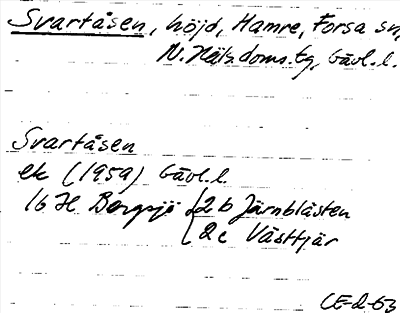 Svartåsen, höjd, Hamre, Forsa sn,
N. Häls. doms. tg, Gävl. l.
Svartåsen
ek (1959) Gävl. l.
16 H Bergsjö { 2 b Järnblåsten
2 c Västtjär
CE-d-63